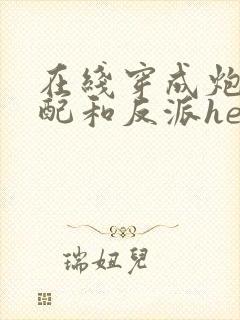 在綫穿成炮
配和反派he
瑞妞兒